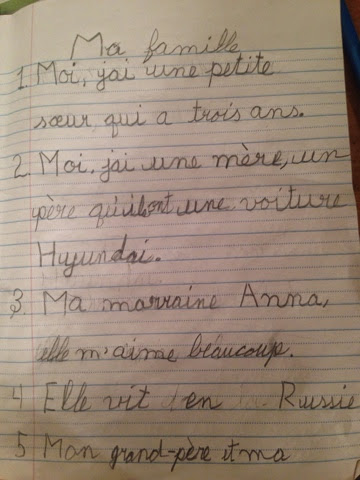 Ma famille
1. Moi, j'ai une petite
sœur qui a trois ans.
2. Moi, j'ai une mère, un
père qui ont une voiture
Hyundai.
3. Ma marraine Anna,
elle m'aime beaucoup.
4 Elle vit en Russie
5 Mon grand-père et ma